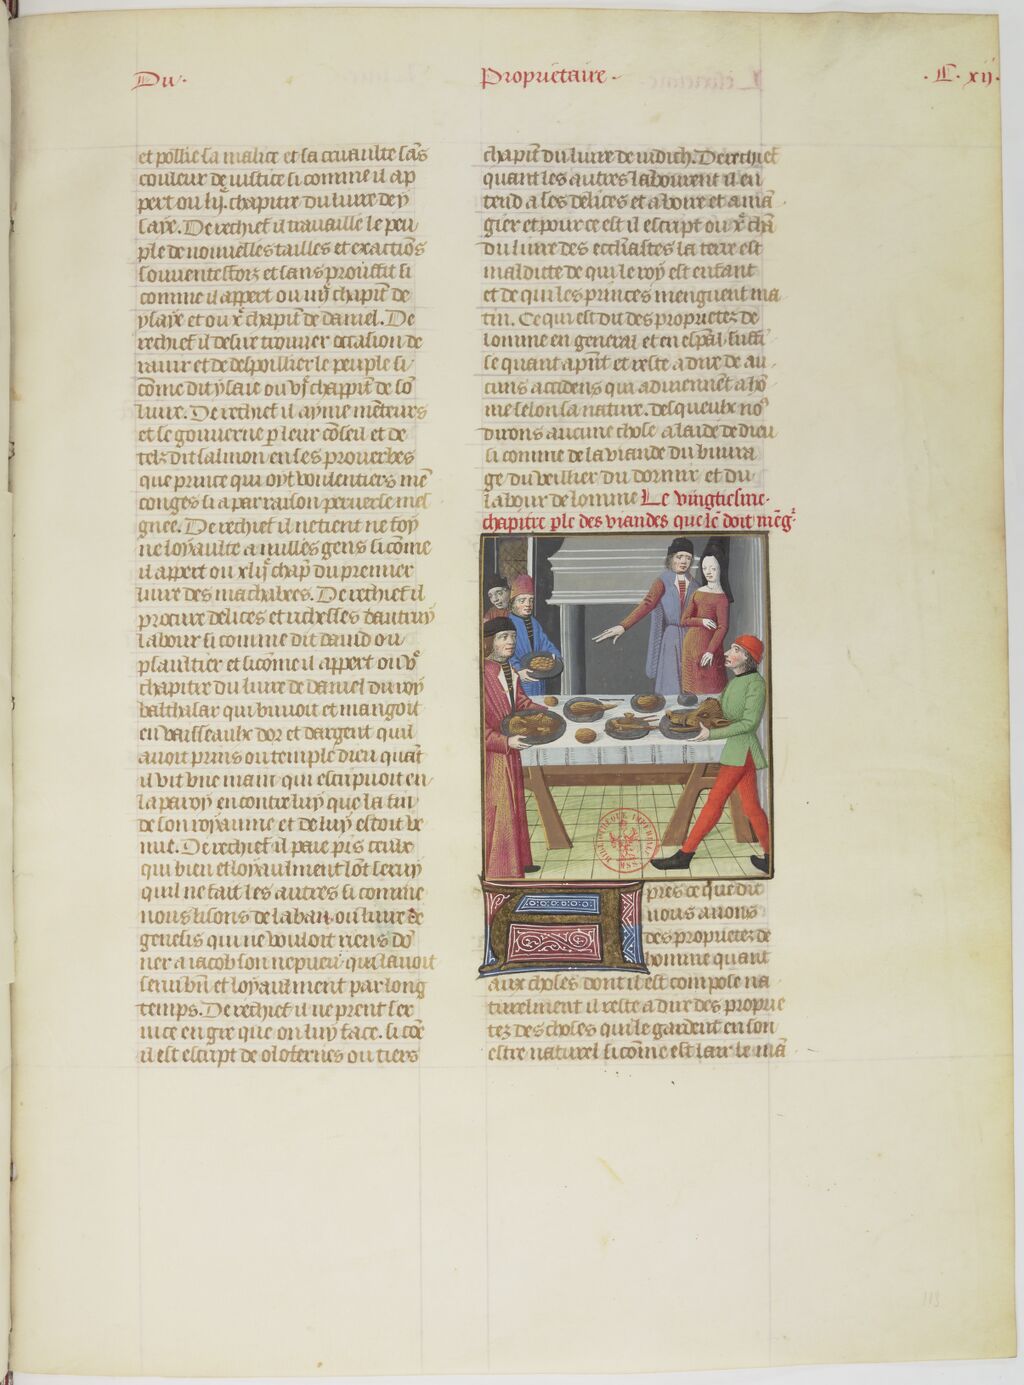 Du·
Proprietaire·
·C·xij·
et pollie sa malice et sa cruaulte sãs
couleur de iustice si comme il ap
pert ou iij. chapitre du liure de y
saye. De rechief il trauaille le peu
ple de nouuelles tailles et exactiõs
souuenteffoiz et sans prouffit si
comme il appert ou iiij chapitr̃ de
ysaye et ou x̃ chapitr̃ de daniel. De
rechief il desire trouuer occasion de
rauir et de despoillier le peuple si
cõme dit ysaie ou vj chappitr̃ de sõ
liure. De rechief il ayme mẽteurs
et se gouuerne p leur cõseil et de
telz dit salmon en ses prouerbes
que prince qui oyt voulentiers mẽ
conges si a par raison peruerse mes
gnee. De rechief il ne tient ne foy
ne loyaulte a nulles gens si cõme
il appert ou xliiȷ̃ chap̃ du premier
liure des machabees. De rechief il
procure delices et richesses dautruy
labour si comme dit dauid ou
psaultier et si cõme il appert ou v̊
chapitre du liure de daniel du roy
balthasar qui buuoit et mangoit
en vaisseaulx dor et dargent quil
auoit prins ou temple dieu quãt
il vit vne main qui escripuoit en
la paroy encontre luy que la fin
de son royaume et de luy estoit ve
nue. De rechief il paie pis ceulx
qui bien et loyaulment lõt seruy
quil ne fait les autres si comme
nous lisons de laban ou liure de
genesis qui ne vouloit riens dõ
ner a iacob son nepueu qui lauoit
serui biñ et loyaulment par long
temps. De rechief il ne prent ser
uice en gre que on luy face. si cõe
il est escript de olofernes ou tiers
chapitr̃ du liure de iudich. De rechief
quant les autres labourent il en
tend a ses delices et a boire et a mã
gier et pour ce est il escript ou x̃ chã
du liure des ecclīastes la terre est
maldicte de qui le roy est enfant
et de qui les princes menguent ma
tin. Ce qui est dit des proprietez de
lomme en general et en esp̃al suffi
se quant ap̃nt et reste a dire de au
cuns accidens qui aduiennẽt a hõ
me selon sa nature. desqueulx no᷒
dirons aucune chose a laide de dieu
si comme de la viande du buura
ge du veillier du dormir et du
labour de lomme Le vingtiesme
chapitre ple des viandes que lẽ doit mẽg᷑
pres ce que dit
nous auons
des proprietez de
homme quant
aux choses dont il est compose na
turelment il reste a dire des proprie
tez des choses qui le gardent en son
estre naturel si cõme est lair le mã
BIBLIOTHEQUE IMPERIALE
MSS
113